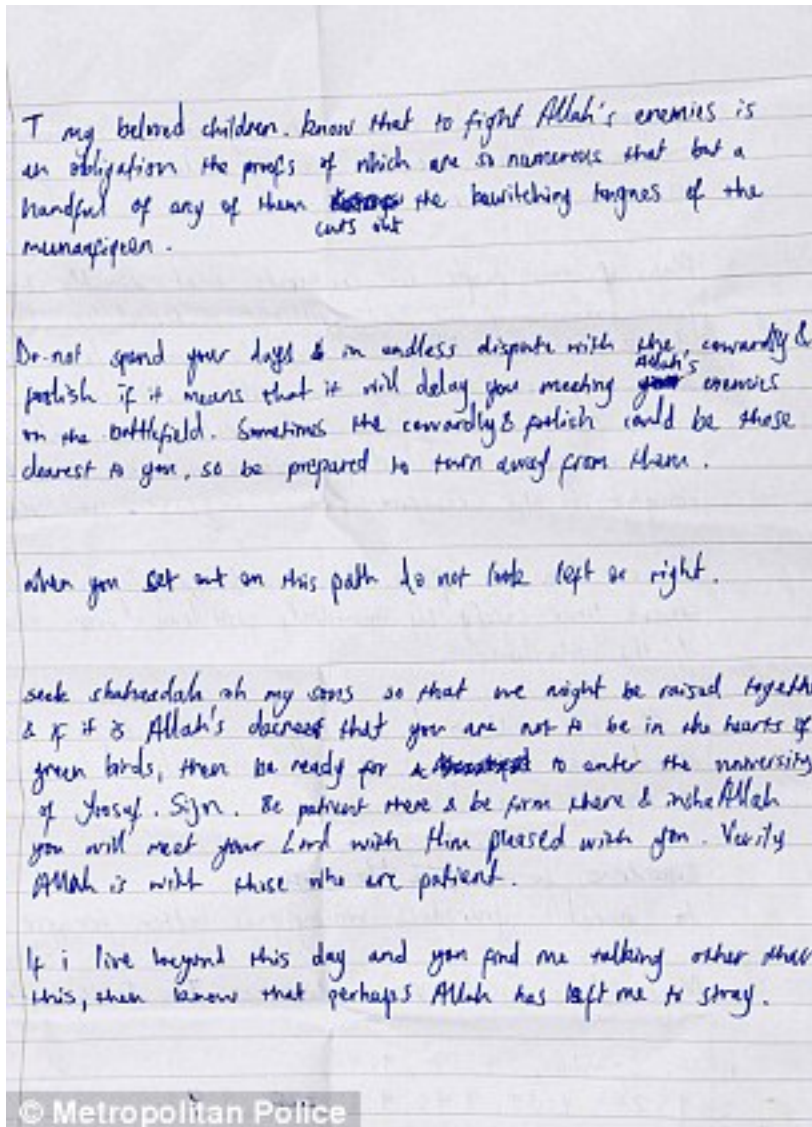 T my beloved children. know that to fight Allah's enemies is
an obligation the proofs of which are so numerous that but a
handful of any of them the bewitching tongues of the
cuts out
munafiqeen.
Do not spend your days & in endless dispute with the cowardly &
Allah's
foolish if it means that it will delay you meeting enemies
on the battlefield. Sometimes the cowardly & foolish could be those
dearest to you, so be prepared to turn away from them.
when you set out on this path do not look left or right.
seek shaheedah oh my sons so that we might be raised togethe
& if it is Allah's decree that you are not to be in the hearts of
green birds, then be ready for to enter the university
of Yusuf. Sijn. Be patient there & be firm there & insha Allah
you will meet your Lord with Him pleased with you. Verily
Allah is with those who are patient.
If i live beyond this day and you find me talking other than
this, then know that perhaps Allah has left me to stray.
© Metropolitan Police